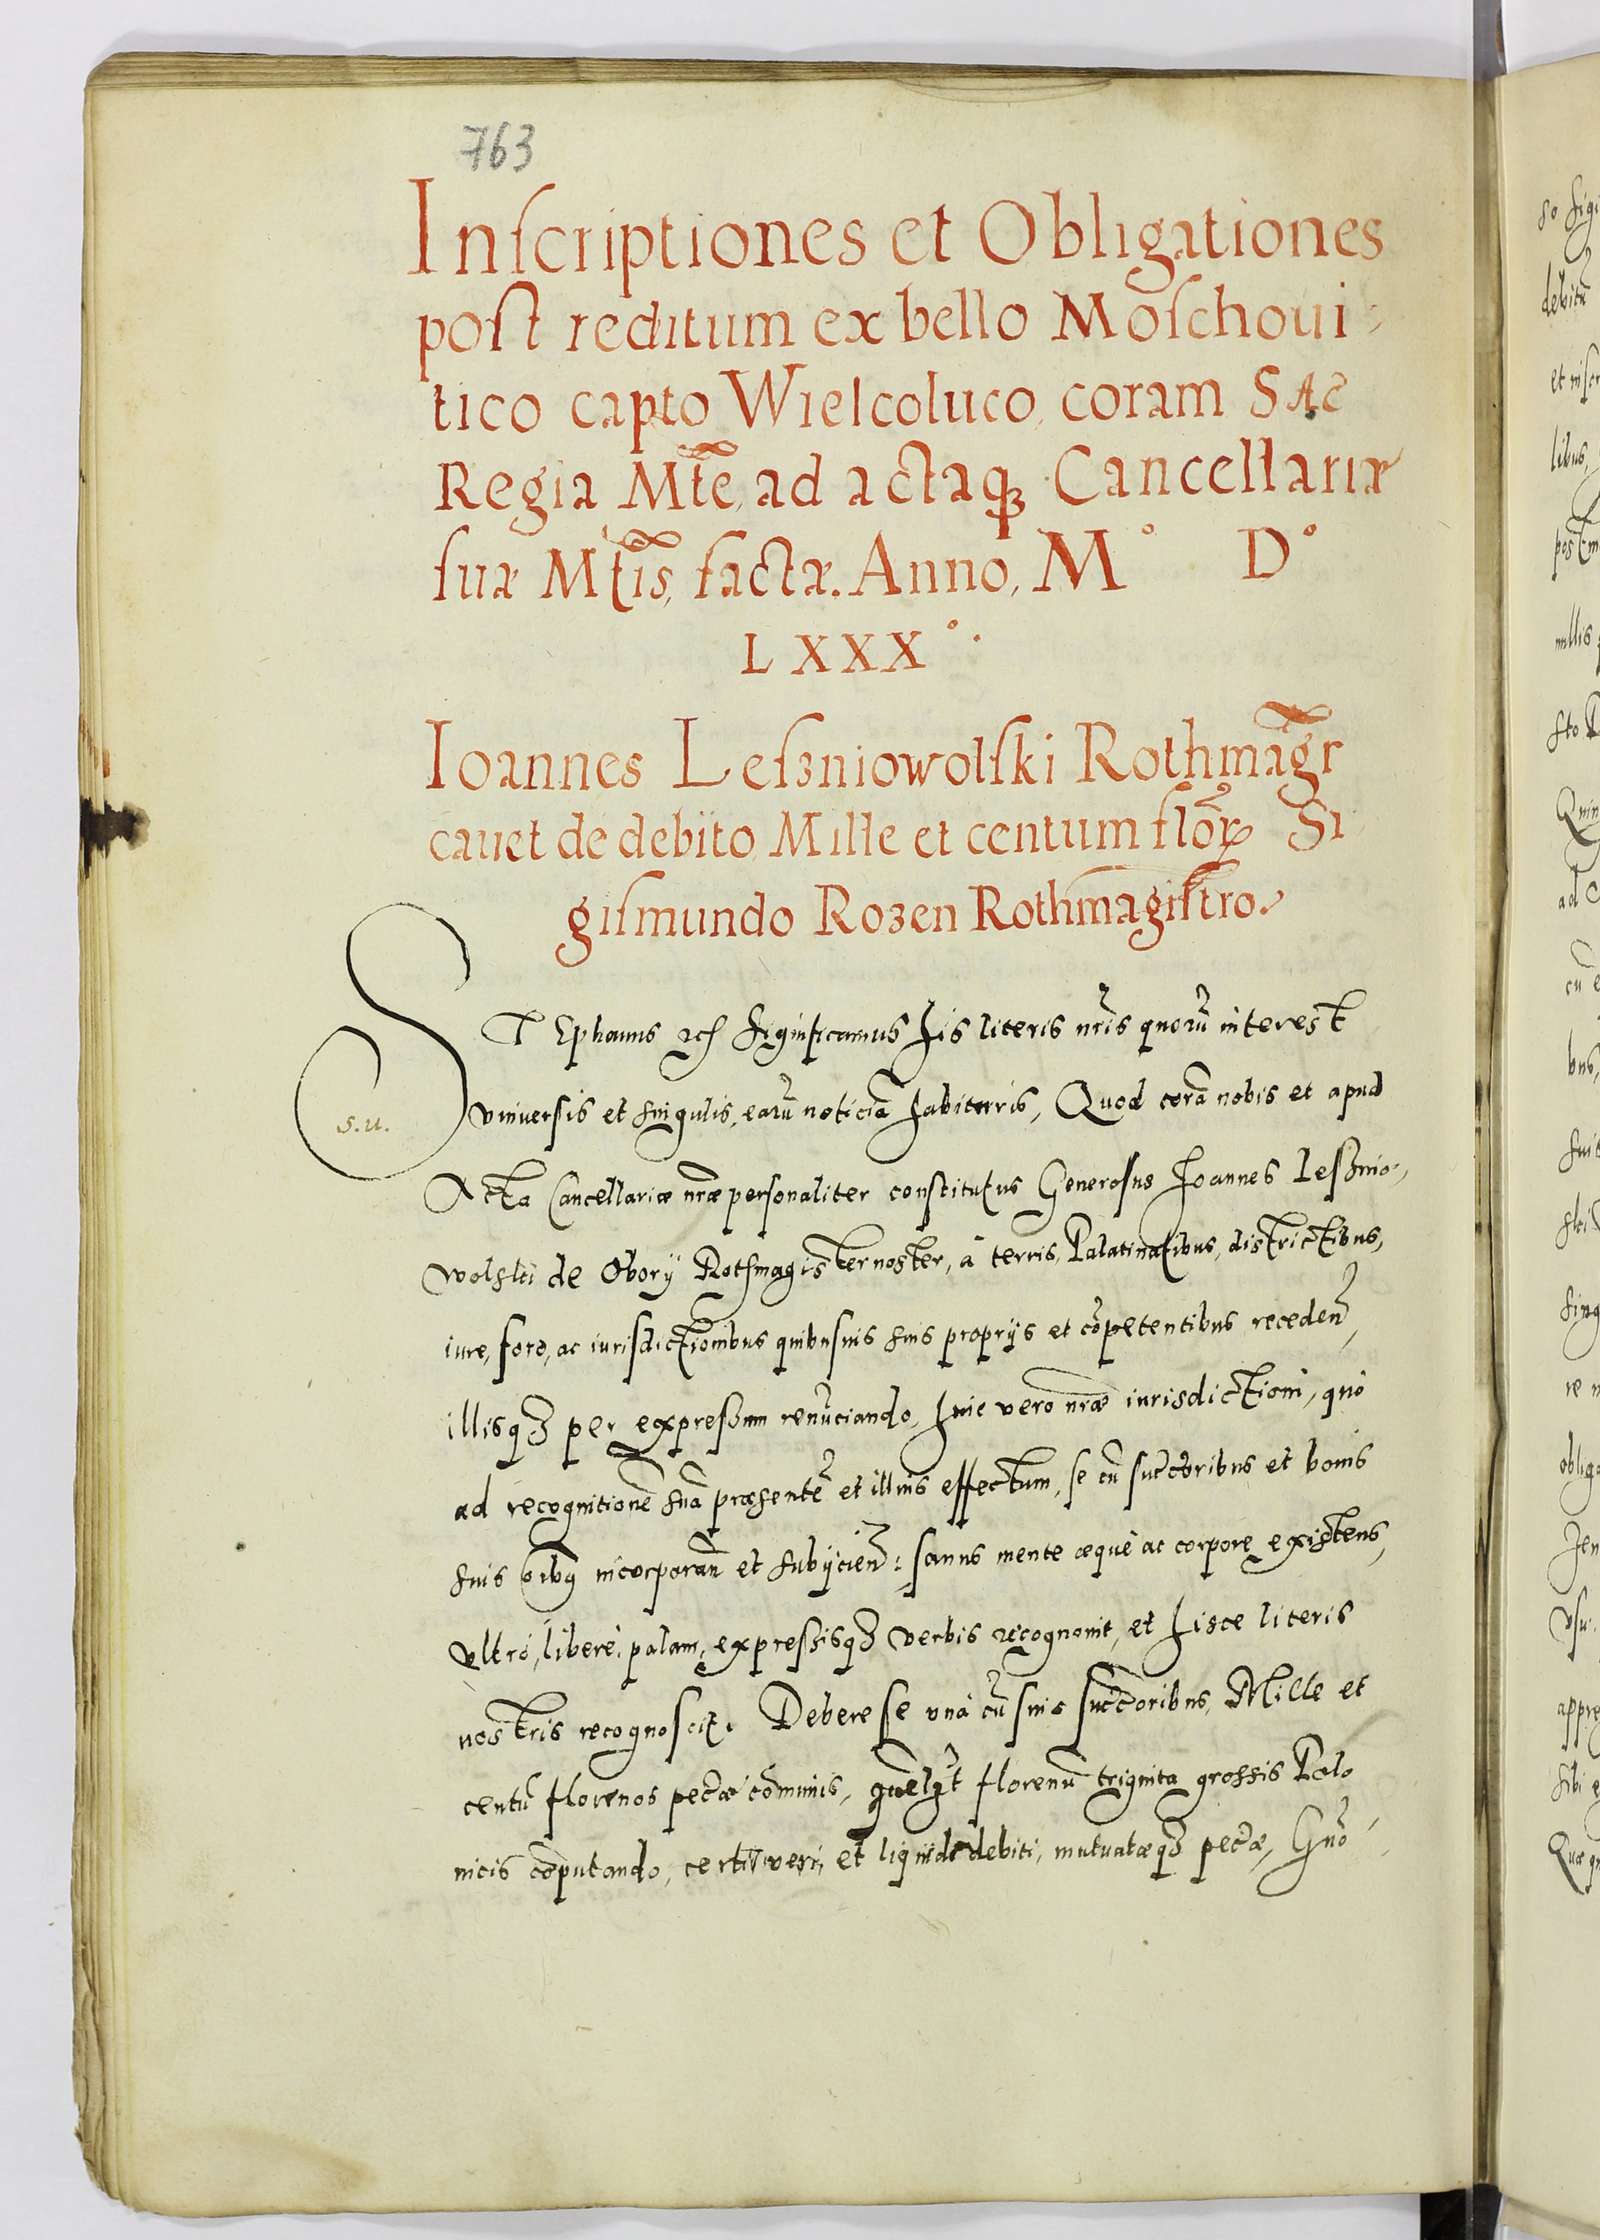 763
Inscriptiones et Obligationes
post reditum ex bello Moschoui-
tico capto Wielcoluco, coram Sac
Regia Mte, ad actaq3 Cancellariæ
suæ Mtis, factæ. Anno, M° D°
LXXX°.
Ioannes Leszniowolski Rothmagr
cauet de debito Mille et centum flor Si
gismundo Rozen Rothmagistro.
STEphanus etc Significamus his literis nris quorū interest
vniuersis et singulis, earū noticiā habituris, Quod corā nobis et apud
Acta Cancellariæ nræ personaliter constitutus Generosus Joannes Leßnio-
wolski de Obory Rothmagister noster, à terris, Palatinatibus, districtibus,
iure, foro, ac iurisdictionibus quibusuis suis proprijs et cōpetentibus receden,
illisq3 per expressum renūciando, huic vero nræ iurisdictioni, quò
ad recognitionē suā præsentē et illius effectum, se cū succoribus et bonis
suis oībus incorporan et subijcien: sanus mente æquè ac corpore existens,
vltrò, liberè, palam, expressisq3 verbis recognouit, et hisce literis
nostris recognoscit. Debere se vnà cū suis succoribus, Mille et
centū florenos pecæ cōmunis, quēlꝫt florenū triginta grossis Polo
nicis cōputando, certi, veri, et liquidi debiti, mutuatæq3 pecæ, Gnō
S. u.
so sigi
debitū
et inscr
libus,
nullis
sto
Quin
ad
cū e
bus,
sing
re n
oblig
vsu
appre
sibi e
Quæ q